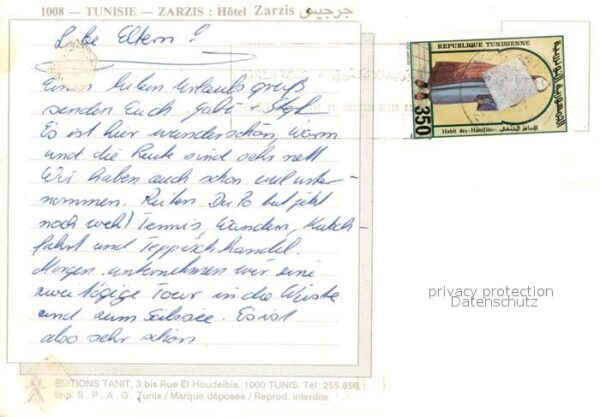 1008 — TUNISIE — ZARZIS : Hôtel Zarzis جرجيس
Liebe Eltern!
Einen lieben Urlaubsgruß
senden Euch Gabi +
Es ist hier wunderschön, warm
und die Leute sind sehr nett
Wir haben auch schon viel unter-
nommen. Reiten Der Po tut jetzt
noch weh! Tennis, Wandern, Kutsch-
fahrt und Teppischhandel.
Morgen unternehmen wir eine
zweitägige Tour in die Wüste
und zum Salzsee. Es ist
also sehr schön
REPUBLIQUE TUNISIENNE
الجمهورية التونسية
350
Habit des Hanéfites
privacy protection
Datenschutz
EDITIONS TANIT, 3 bis Rue El Houdeibie, 1000 TUNIS. Tél: 255 856
Imp. S. P. A. G. Tunis / Marque déposée / Reprod. interdite